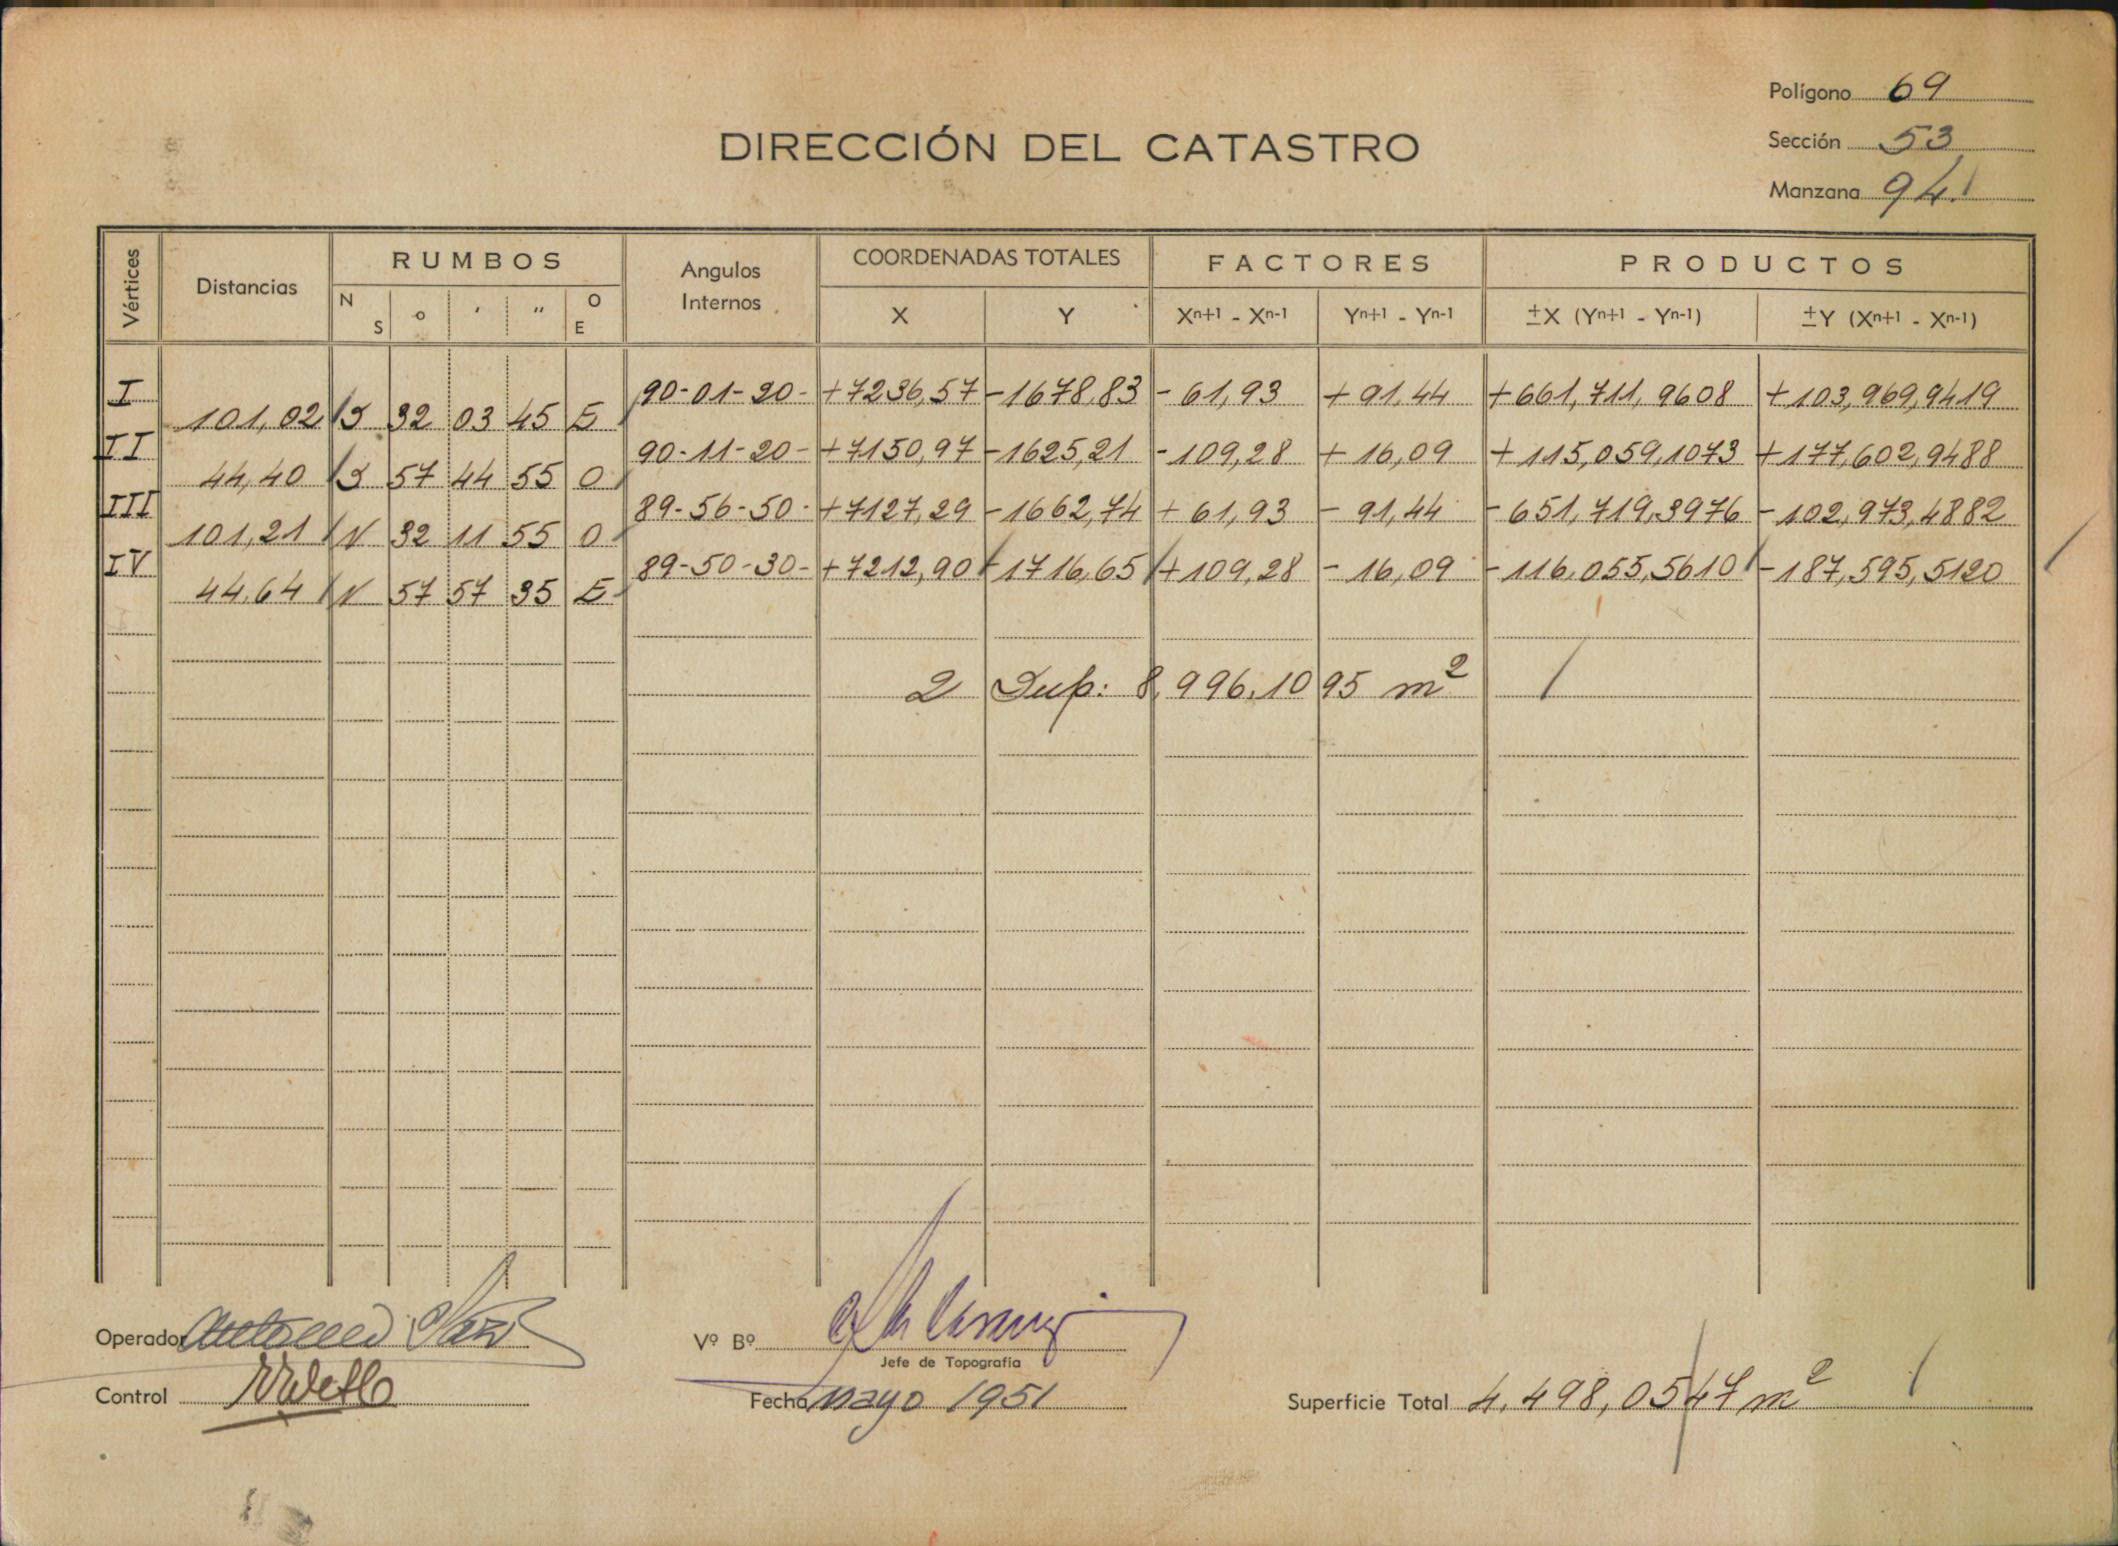 Polígono 69
DIRECCIÓN DEL CATASTRO
Sección 53
Manzana 94.
Vértices Distancias RUMBOS Angulos Internos COORDENADAS TOTALES FACTORES PRODUCTOS
N S o ′ ″ O E X Y Xn+1 - Xn-1 Yn+1 - Yn-1 ±X (Yn+1 - Yn-1) ±Y (Xn+1 - Xn-1)
I 90-01-20- +7236,57 -1678,83 -61,93 +91,44 +661,711,9608 +103,969,9419
101,02 S 32 03 45 E
II 90-11-20- +7150,97 -1625,21 -109,28 +16,09 +115,059,1073 +177,602,9488
44,40 S 57 44 55 O
III 89-56-50- +7127,29 -1662,74 +61,93 -91,44 -651,719,3976 -102,973,4882
101,21 N 32 11 55 O
IV 89-50-30- +7212,90 -1716,65 +109,28 -16,09 -116,055,5610 -187,595,5120
44,64 N 57 57 35 E
2 Sup: 8,996,1095 m²
Operador
Vº Bº
Jefe de Topografía
Control
Fecha mayo 1951
Superficie Total 4,498,0547 m²